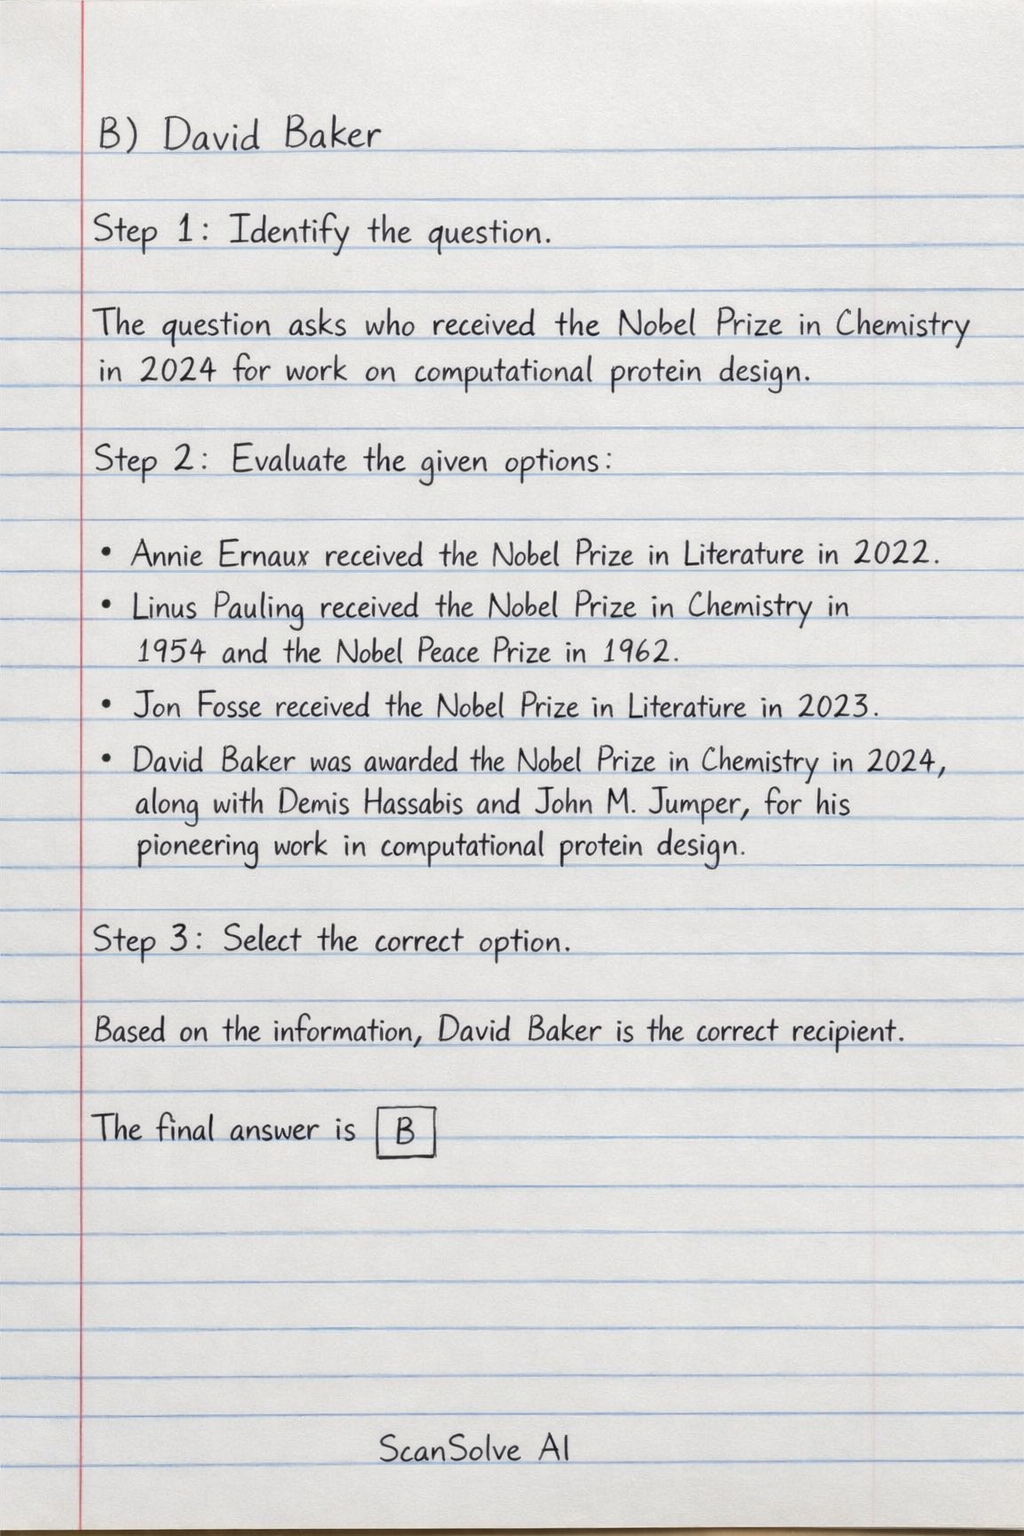 B) David Baker
Step 1: Identify the question.
The question asks who received the Nobel Prize in Chemistry
in 2024 for work on computational protein design.
Step 2: Evaluate the given options:
• Annie Ernaux received the Nobel Prize in Literature in 2022.
• Linus Pauling received the Nobel Prize in Chemistry in
1954 and the Nobel Peace Prize in 1962.
• Jon Fosse received the Nobel Prize in Literature in 2023.
• David Baker was awarded the Nobel Prize in Chemistry in 2024,
along with Demis Hassabis and John M. Jumper, for his
pioneering work in computational protein design.
Step 3: Select the correct option.
Based on the information, David Baker is the correct recipient.
The final answer is B
ScanSolve AI